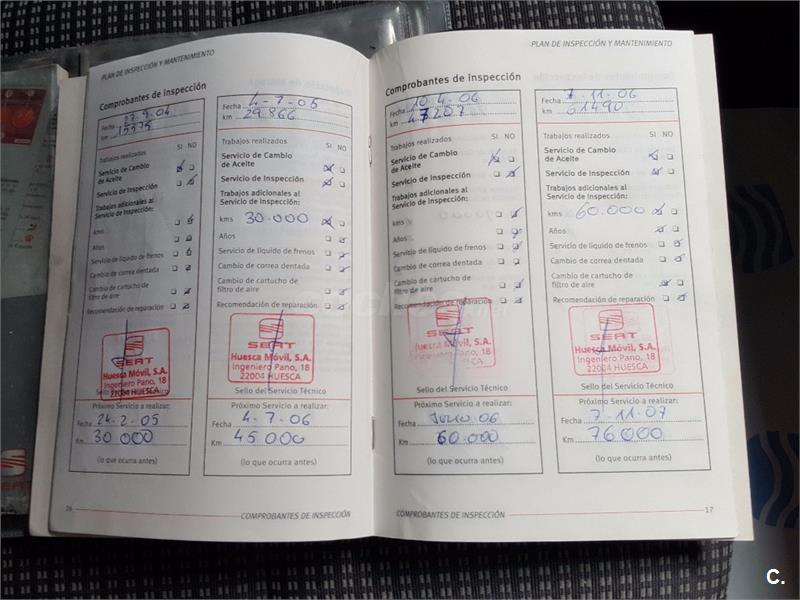 PLAN DE INSPECCIÓN Y MANTENIMIENTO
Comprobantes de inspección
Fecha 27.9.04
km
Trabajos realizados SI NO
Servicio de Cambio
de Aceite
Servicio de Inspección
Trabajos adicionales al
Servicio de Inspección:
kms
Años
Servicio de líquido de frenos
Cambio de correa dentada
Cambio de cartucho de
filtro de aire
Recomendación de reparación
SEAT
Huesca Móvil, S.A.
Ingeniero Pano, 18
22004 HUESCA
Sello del Servicio Técnico
Próximo Servicio a realizar:
Fecha 24.2.05
Km 30 000
(lo que ocurra antes)
Fecha 4-7-05
km 29.866
Trabajos realizados SI NO
Servicio de Cambio
de Aceite
Servicio de Inspección
Trabajos adicionales al
Servicio de Inspección:
kms 30.000
Años
Servicio de líquido de frenos
Cambio de correa dentada
Cambio de cartucho de
filtro de aire
Recomendación de reparación
SEAT
Huesca Móvil, S.A.
Ingeniero Pano, 18
22004 HUESCA
Sello del Servicio Técnico
Próximo Servicio a realizar:
Fecha 4.7.06
Km 45000
(lo que ocurra antes)
16
COMPROBANTES DE INSPECCIÓN
PLAN DE INSPECCIÓN Y MANTENIMIENTO
Comprobantes de inspección
Fecha 10.4.06
km 47207
Trabajos realizados SI NO
Servicio de Cambio
de Aceite
Servicio de Inspección
Trabajos adicionales al
Servicio de Inspección:
kms
Años
Servicio de líquido de frenos
Cambio de correa dentada
Cambio de cartucho de
filtro de aire
Recomendación de reparación
SEAT
Huesca Móvil, S.A.
Ingeniero Pano, 18
22004 HUESCA
Sello del Servicio Técnico
Próximo Servicio a realizar:
Fecha Julio.06
Km 60.000
(lo que ocurra antes)
Fecha 7-11.06
km 61490
Trabajos realizados SI NO
Servicio de Cambio
de Aceite
Servicio de Inspección
Trabajos adicionales al
Servicio de Inspección:
kms 60.000
Años
Servicio de líquido de frenos
Cambio de correa dentada
Cambio de cartucho de
filtro de aire
Recomendación de reparación
SEAT
Huesca Móvil, S.A.
Ingeniero Pano, 18
22004 HUESCA
Sello del Servicio Técnico
Próximo Servicio a realizar:
Fecha 7-11.07
Km 76000
(lo que ocurra antes)
COMPROBANTES DE INSPECCIÓN
17
C.